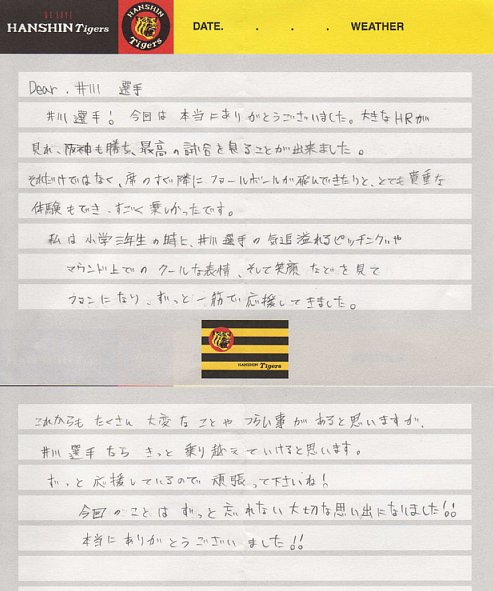 WE LOVE
HANSHIN Tigers
HANSHIN Tigers
DATE. . . . WEATHER
Dear. 井川 選手
井川選手! 今回は 本当にありがとうございました。大きなHRが
見れ、阪神も勝ち、最高の試合を見ることが出来ました。
それだけではなく、席のすぐ隣にファールボールが飛んできたりと、とても貴重な
体験もでき、すごく楽しかったです。
私は小学三年生の時と、井川選手の気迫溢れるピッチングや
マウンド上でのクールな表情、そして笑顔などを見て
ファンになり、ずっと一筋で応援してきました。
HANSHIN Tigers
これからも たくさん 大変なことや つらい事が あると思いますが、
井川選手なら きっと 乗り越えていけると思います。
ずっと応援しているので 頑張って下さいね!
今回のことは ずっと忘れない大切な思い出になりました!!
本当に ありがとうございました!!